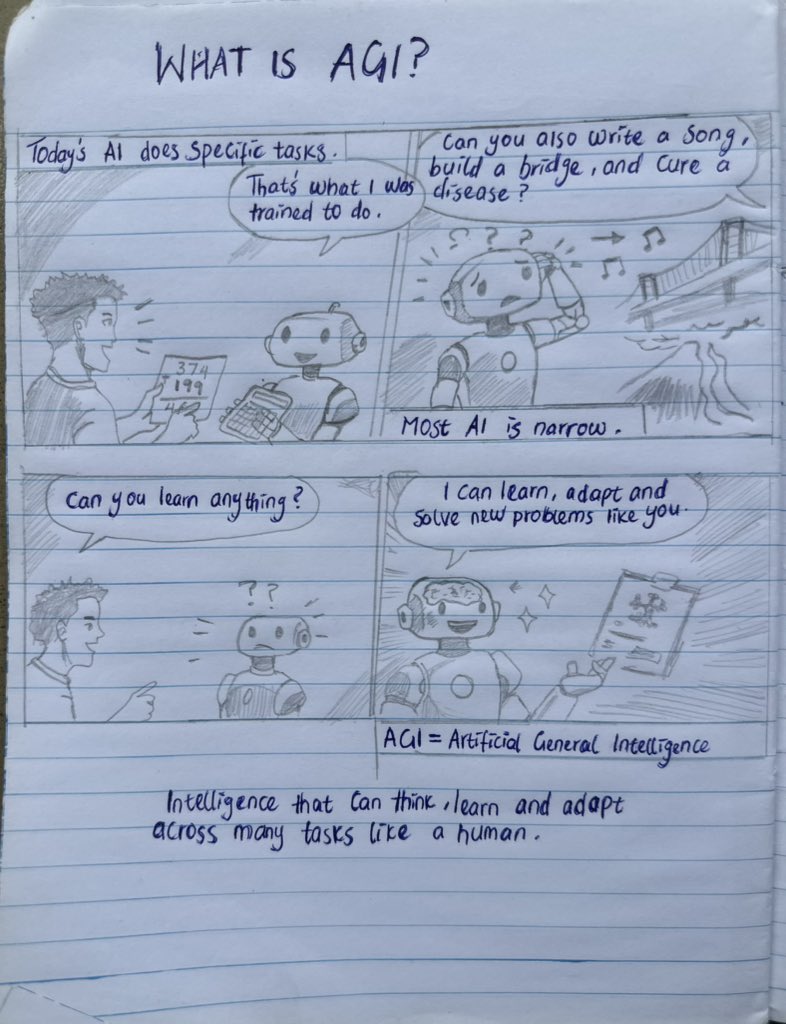 WHAT IS AGI?
Today's AI does specific tasks.
That's what I was
trained to do.
374
199
Can you also write a song,
build a bridge, and cure a
disease?
? ? ?
Most AI is narrow.
Can you learn anything?
? ?
I can learn, adapt and
solve new problems like you.
AGI = Artificial General Intelligence
Intelligence that can think, learn and adapt
across many tasks like a human.